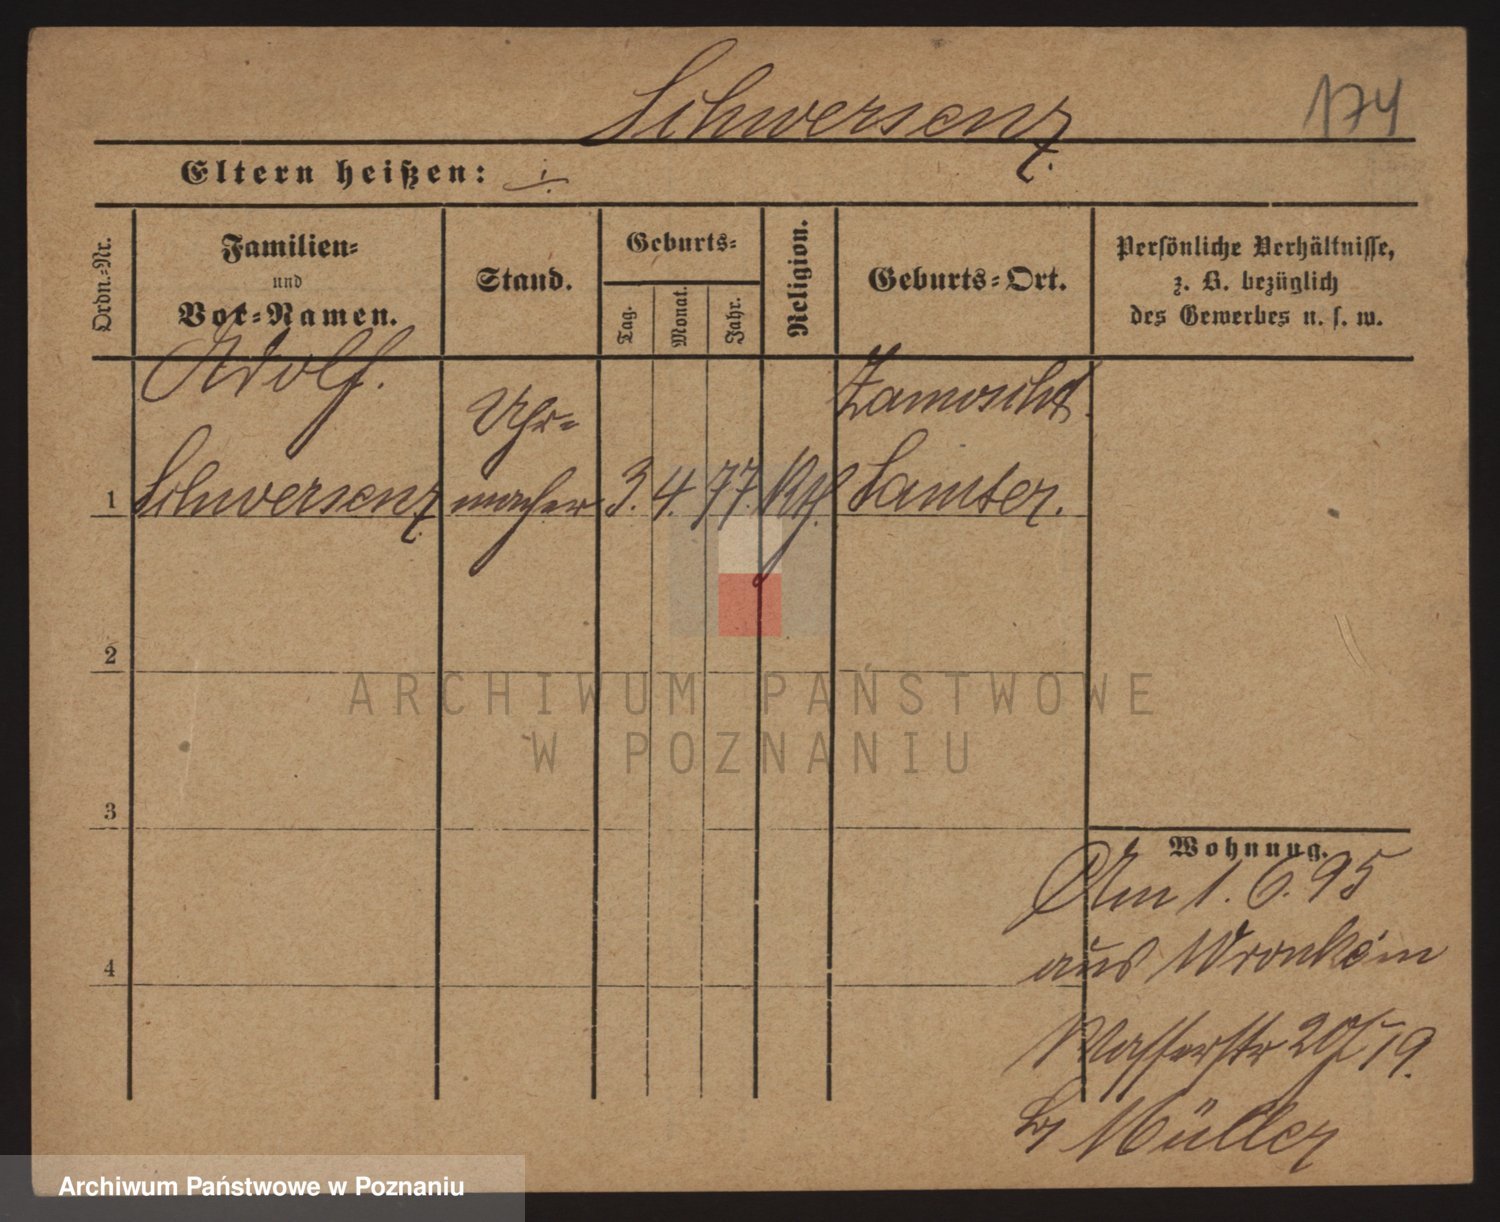 Schwersenz.
174
Eltern heißen:
Ordn.-Nr.
Familien-
und
Vor-Namen.
Stand.
Geburts-
Tag.
Monat.
Jahr.
Religion.
Geburts-Ort.
Persönliche Verhältnisse,
z. B. bezüglich
des Gewerbes u. s. w.
Adolf.
Uhr-
1 Schwersenz macher 3. 4. 77. Samter.
2
3
4
Wohnung.
Am 1. 6. 95
aus Wronke in
Wasserstr 20/19.
bei Müller
ARCHIWUM PAŃSTWOWE
W POZNANIU
Archiwum Państwowe w Poznaniu